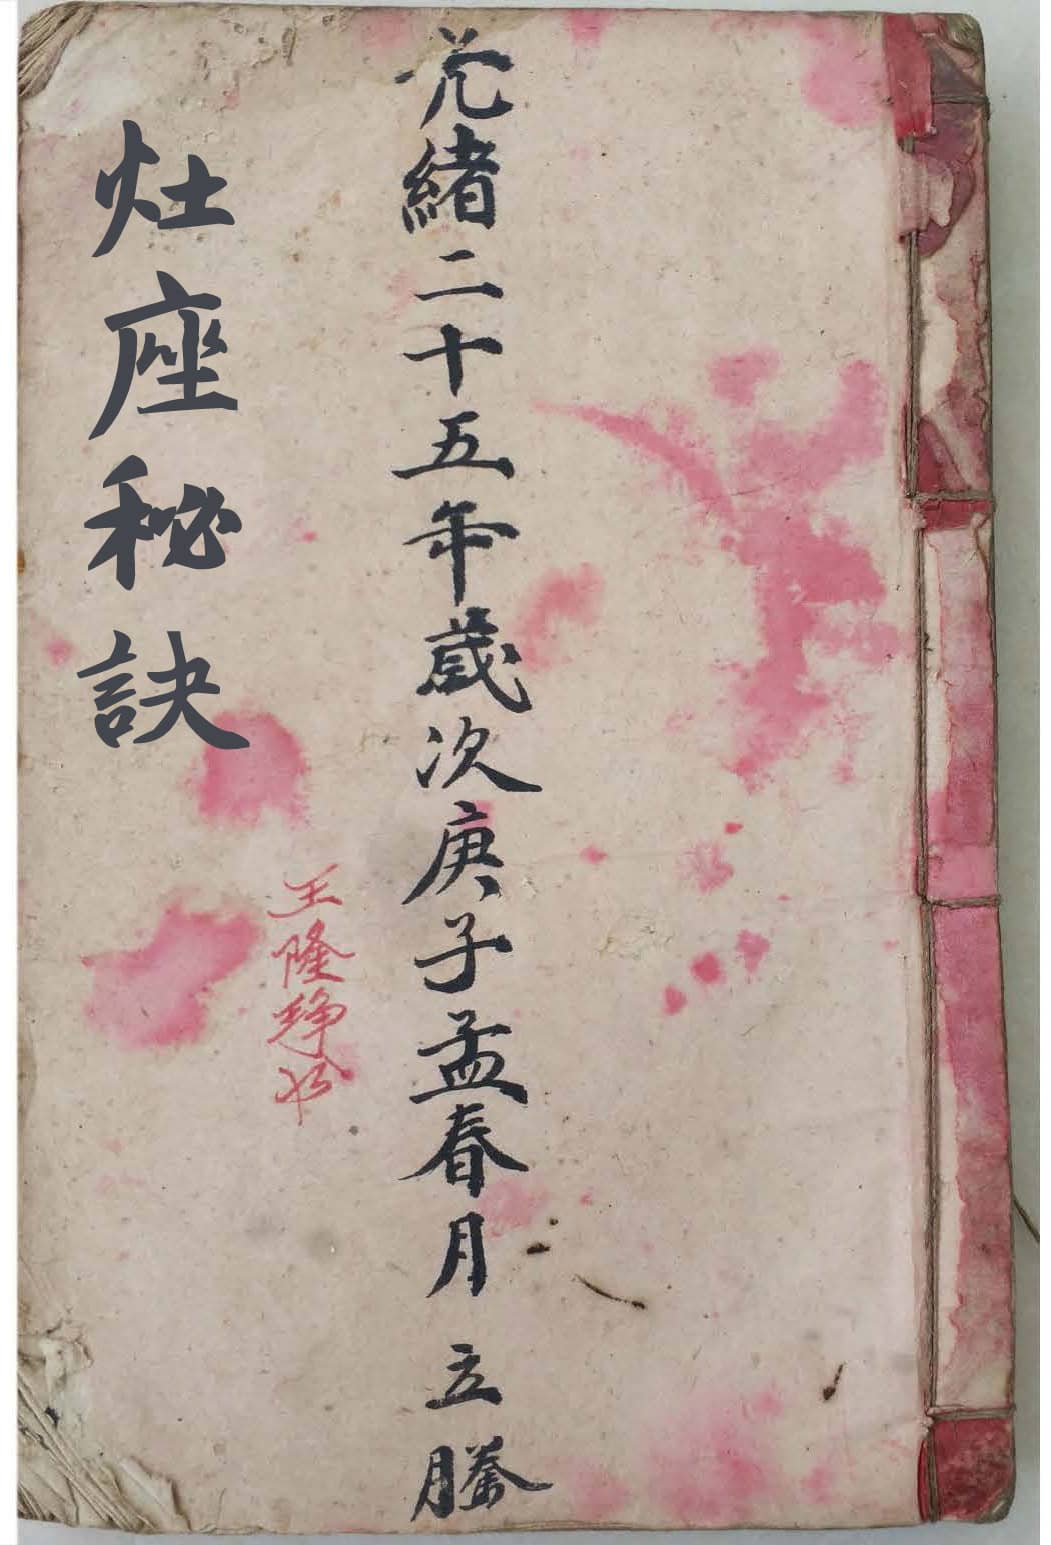 光緒二十五年歲次庚子孟春月 立謄
王隆錚
灶座秘訣